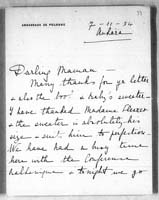 AMBASSADE DE POLOGNE
7-11-34
Ankara
Darling Maman —
Many thanks for yr letter
& also the 100f & baby's sweater —
I have thanked Madame
the sweater is absolutely her
size & suits him to perfection.
We have had a busy time
here with the Conference
& tonight we go